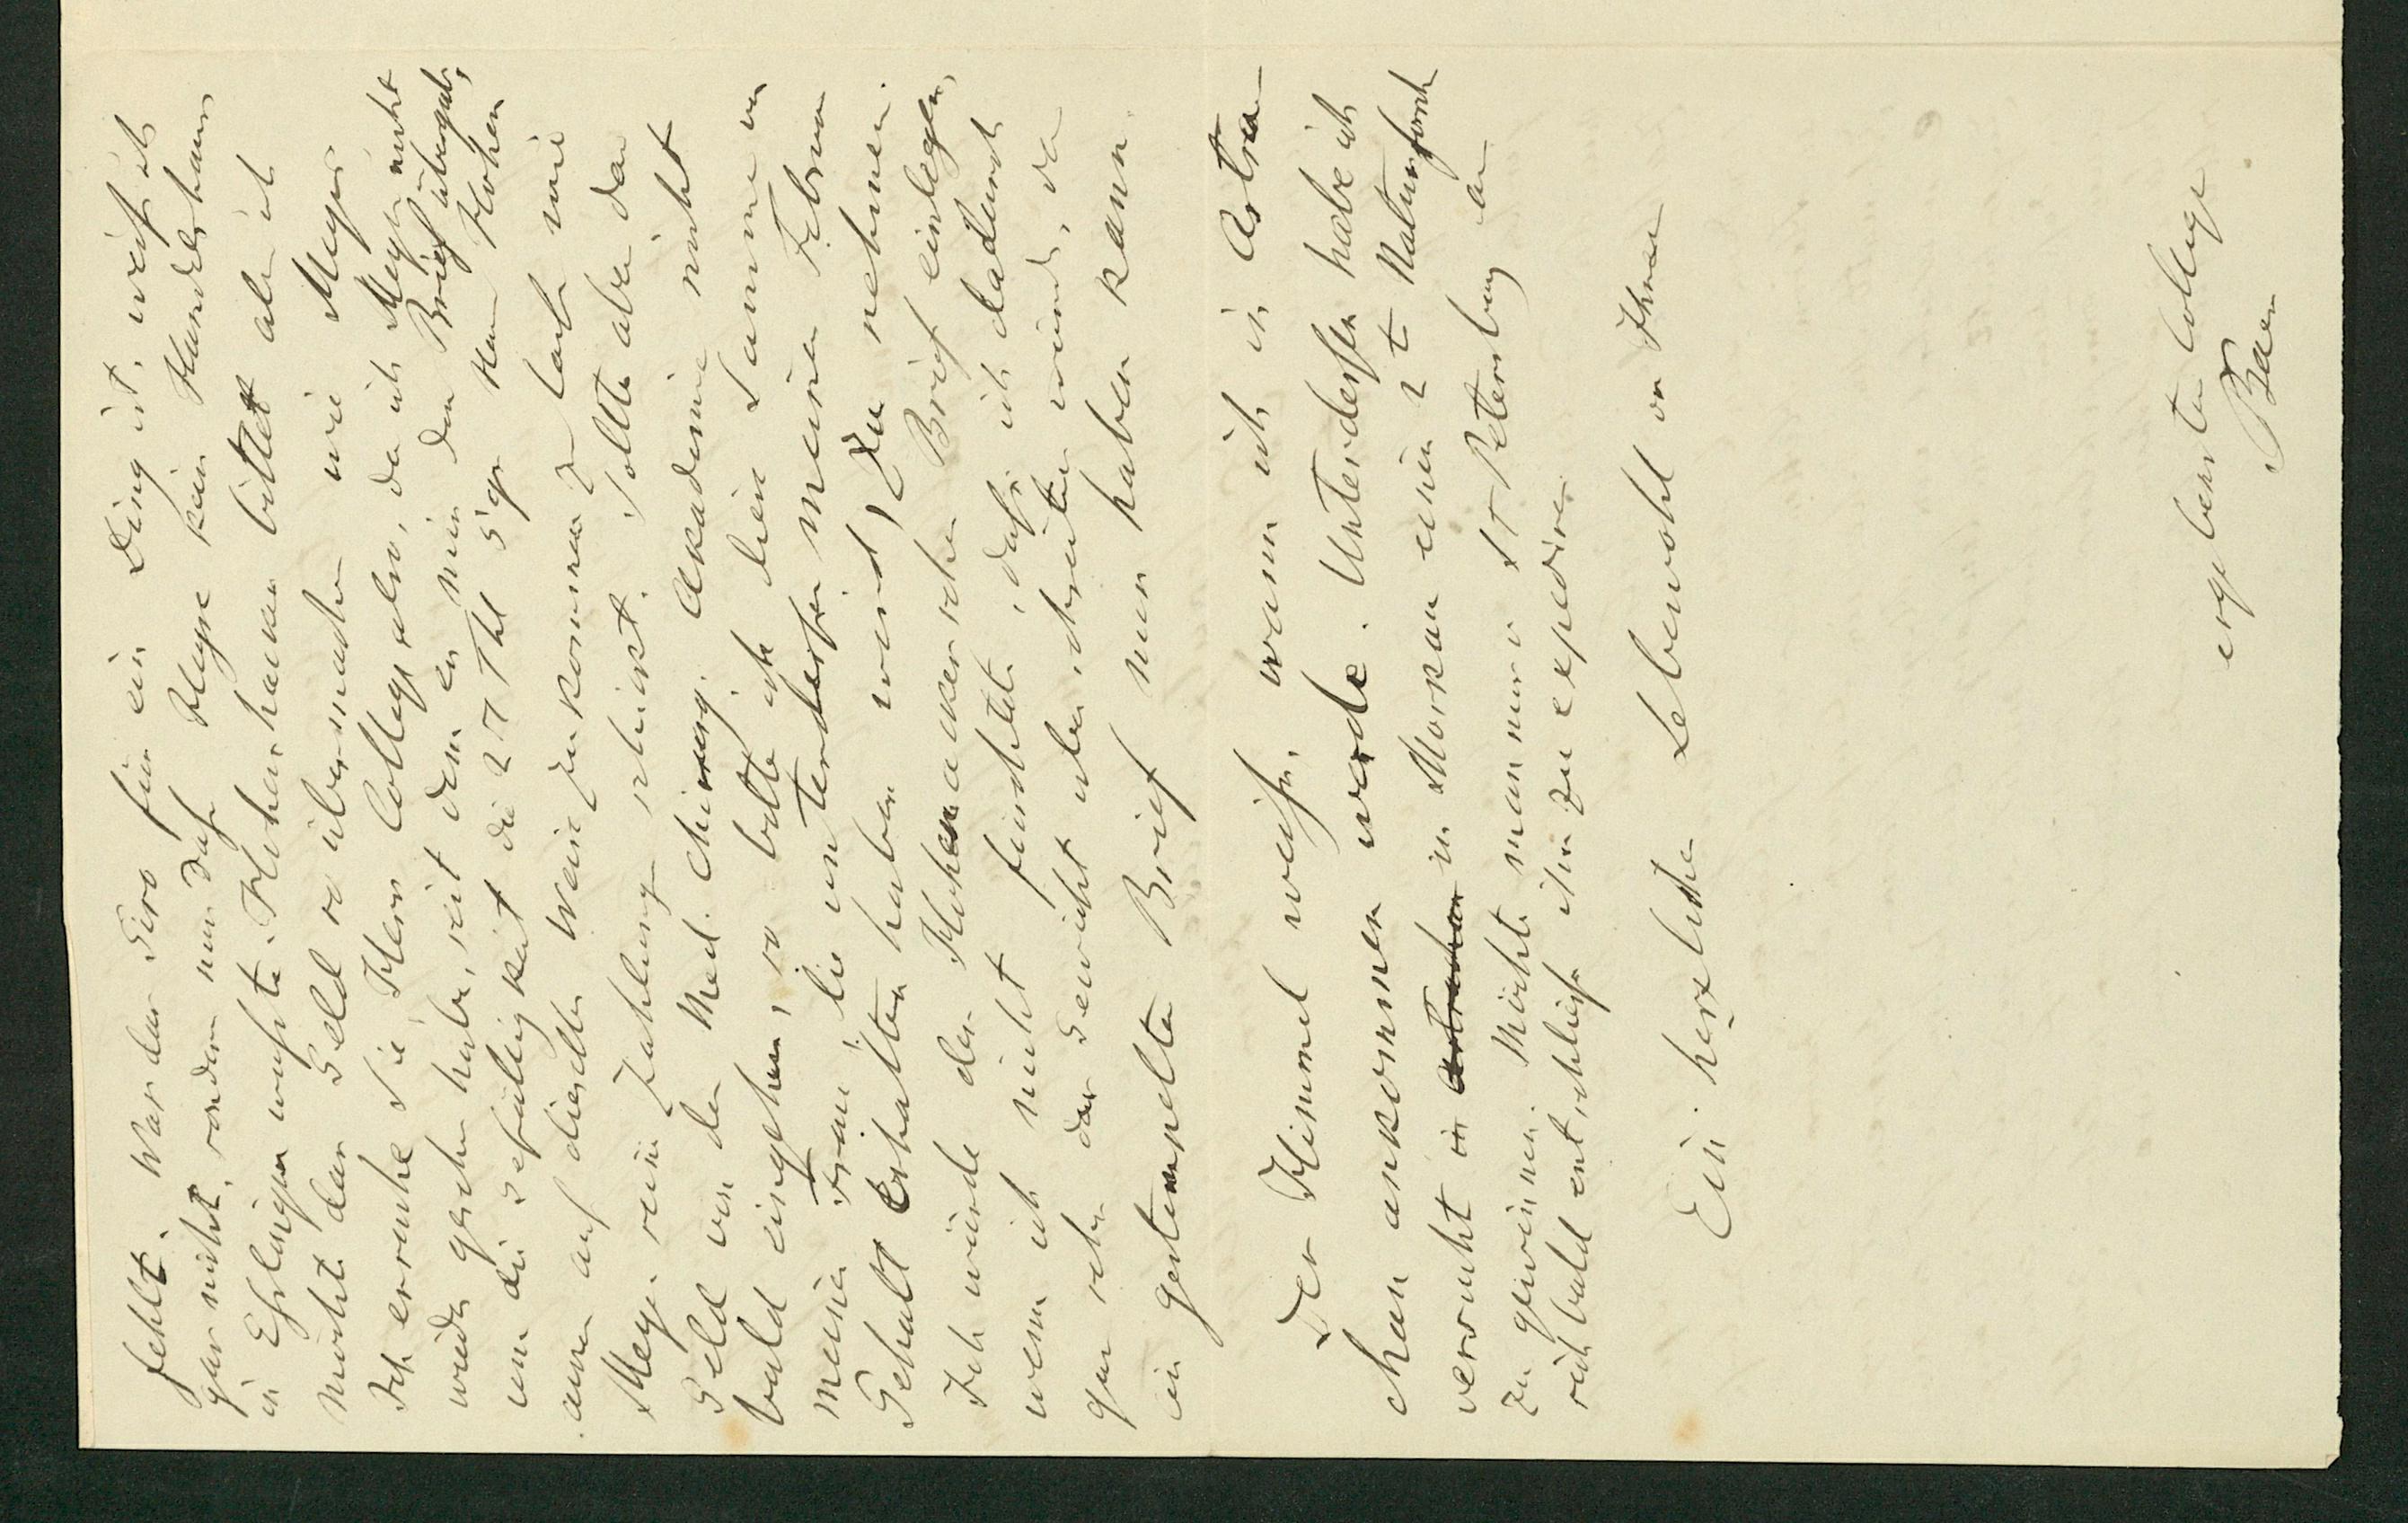 fehlt. Was das Giro für ein Ding ist, weiß ich
gar nicht, sondern nur daß Meyer kein Handelshaus
in Eßlingen wußte. Hohenhacker bittet aber ich
möchte das Geld so übermachen wie Meyer
Ich ersuche Sie, Herr College also, da ich Meyer nicht
wieder gesehen habe, seit dem er mir den Brief übergab,
um die Gefälligkeit die 27 Thl 5 gr Herrn Hohen
acker auf dieselbe Weise zukommen zu lassen wie
Meyer seine Zahlung schickt. Sollte aber das
Geld von der Med. Chirurg. Akademie nicht
bald eingehen, so bitte ich diese Summe von
meiner Frau, die unterdessen meinen Februar
Gehalt erhalten haben wird, zu nehmen.
Ich würde den Hohenackerschen Brief einlegen,
wenn ich nicht fürchtete, daß ich dadurch
gar sehr das Gewicht überschreiten würde, da
ein gestempelter Brief nur haben kann.
Der Himmel weiß, wann ich in Astra
chan ankommen werde. Unterdessen habe ich
versucht in Astrachan in Moskau einen Naturforsch
zu gewinnen. Möchte man nur in St Petersburg
sich bald entschließen ihn zu expediren.
Ein herzliches Lebewohl von Ihrem
ergebensten Collegen
Baer